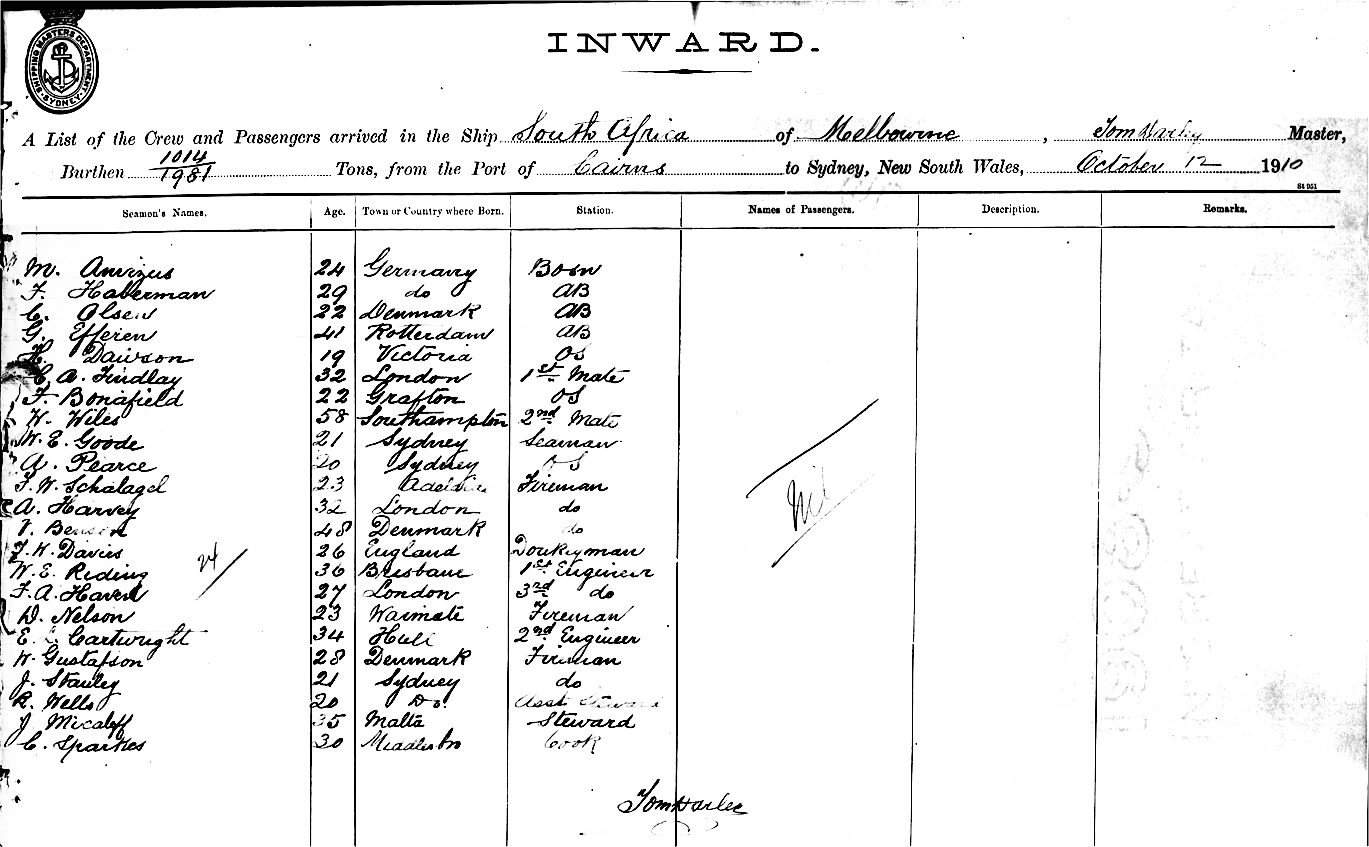 SHIPPING MASTERS DEPARTMENT
SYDNEY
INWARD.
A List of the Crew and Passengers arrived in the Ship South Africa of Melbourne, Tom Harley Master,
Burthen 1014/1981 Tons, from the Port of Cairns to Sydney, New South Wales, October 12 1910
St 951
Seamen's Names. Age. Town or Country where Born. Station. Names of Passengers. Description. Remarks.
M. Anvizus 24 Germany Bosn
F. Haberman 29 do AB
C. Olsen 22 Denmark AB
G. Efferen 41 Rotterdam AB
H. Dawson 19 Victoria OS
C. A. Findlay 32 London 1st Mate
F. Bonafield 22 Grafton OS
W. Wiles 58 Southampton 2nd Mate
W. E. Goode 21 Sydney Seaman
A. Pearce 20 Sydney OS
F. W. Schalagel 23 Fireman
A. Harvey 32 London do
Benson 48 Denmark do
F. H. Davies 26 England Donkeyman
W. E. Riding 36 Brisbane 1st Engineer
F. A. Haven 27 London 3rd do
D. Nelson 23 Waimate Fireman
E. Cartwright 34 Hull 2nd Engineer
W. Gustafson 28 Denmark Fireman
J. Stanley 21 Sydney do
R. Wells 20 Do. Asst Steward
J Micaleff 35 Malta Steward
C. Sparkes 30 Middlesbro Cook
Nil
Tom Harley